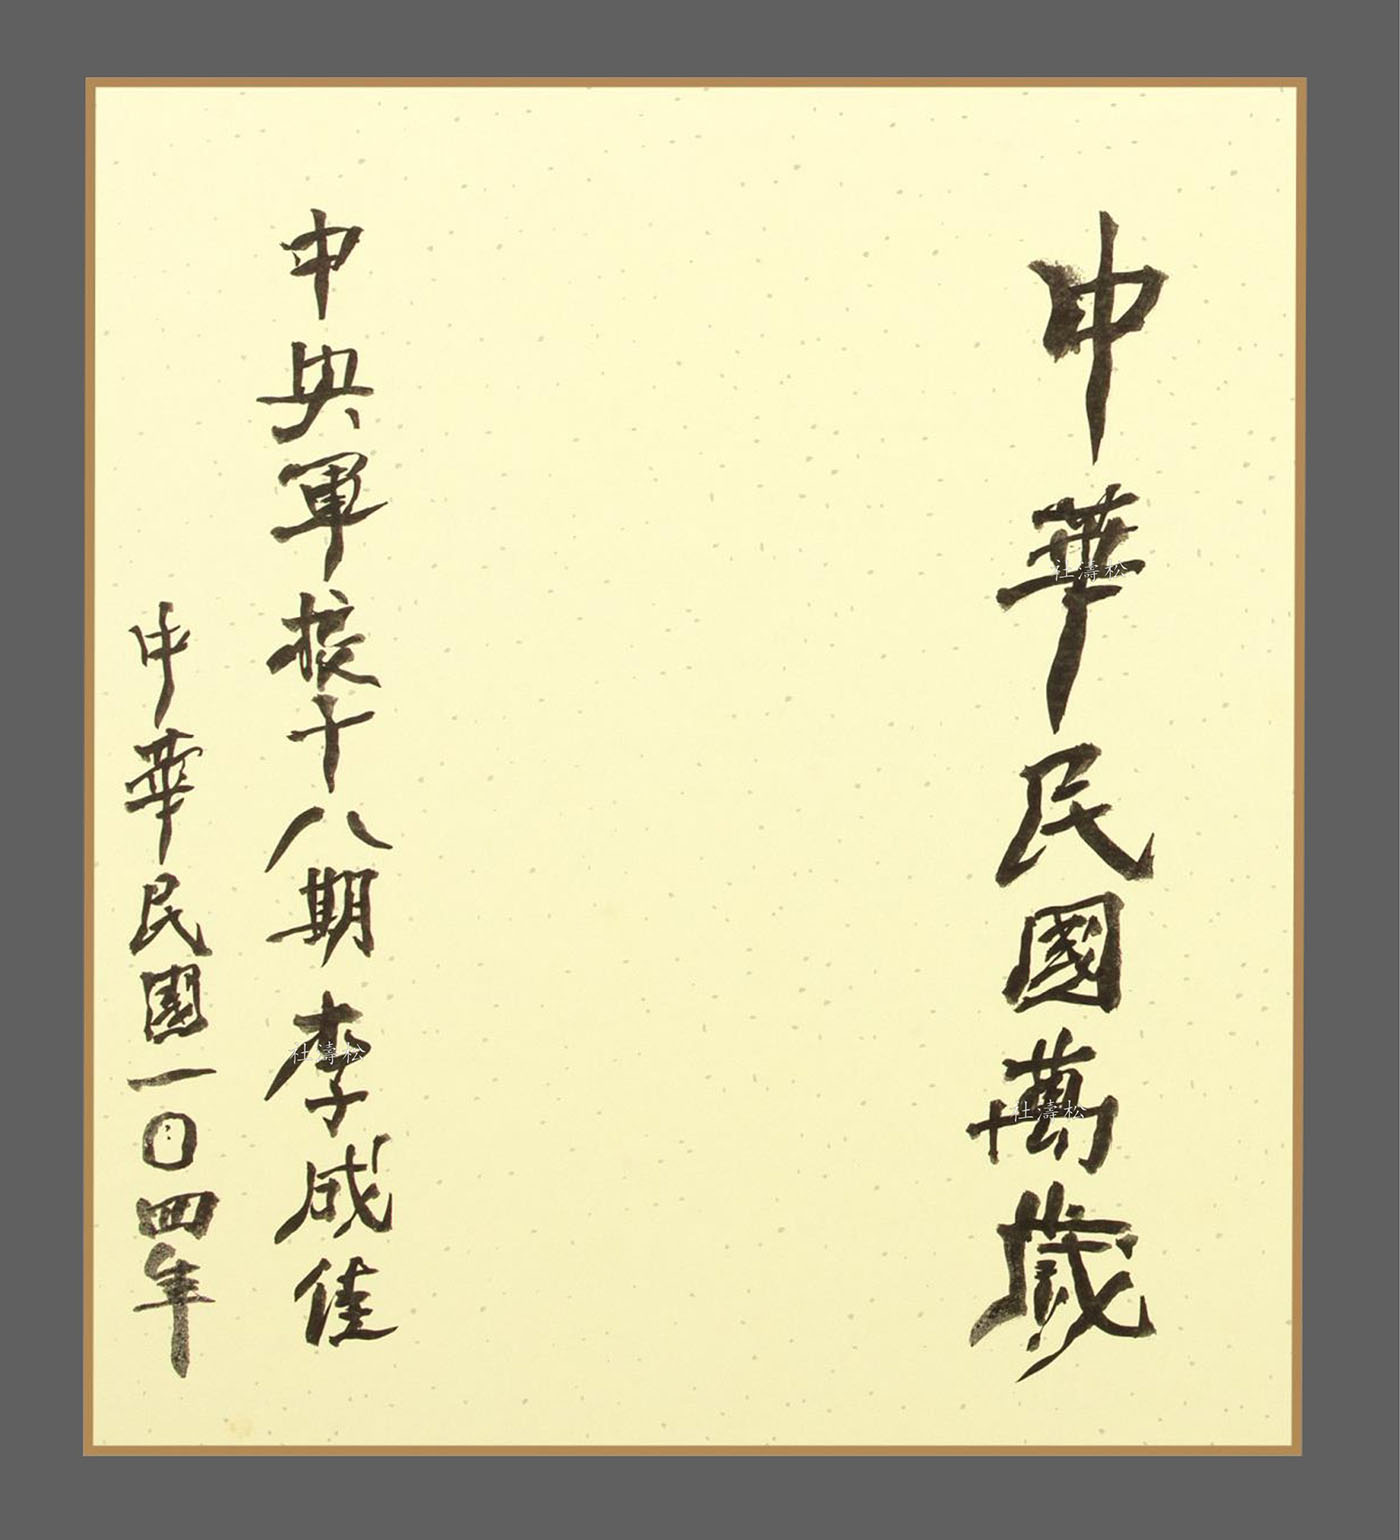 中華民國萬歲
中央軍校十八期 李成佳
中華民國一〇四年
杜濤松
杜濤松
杜濤松